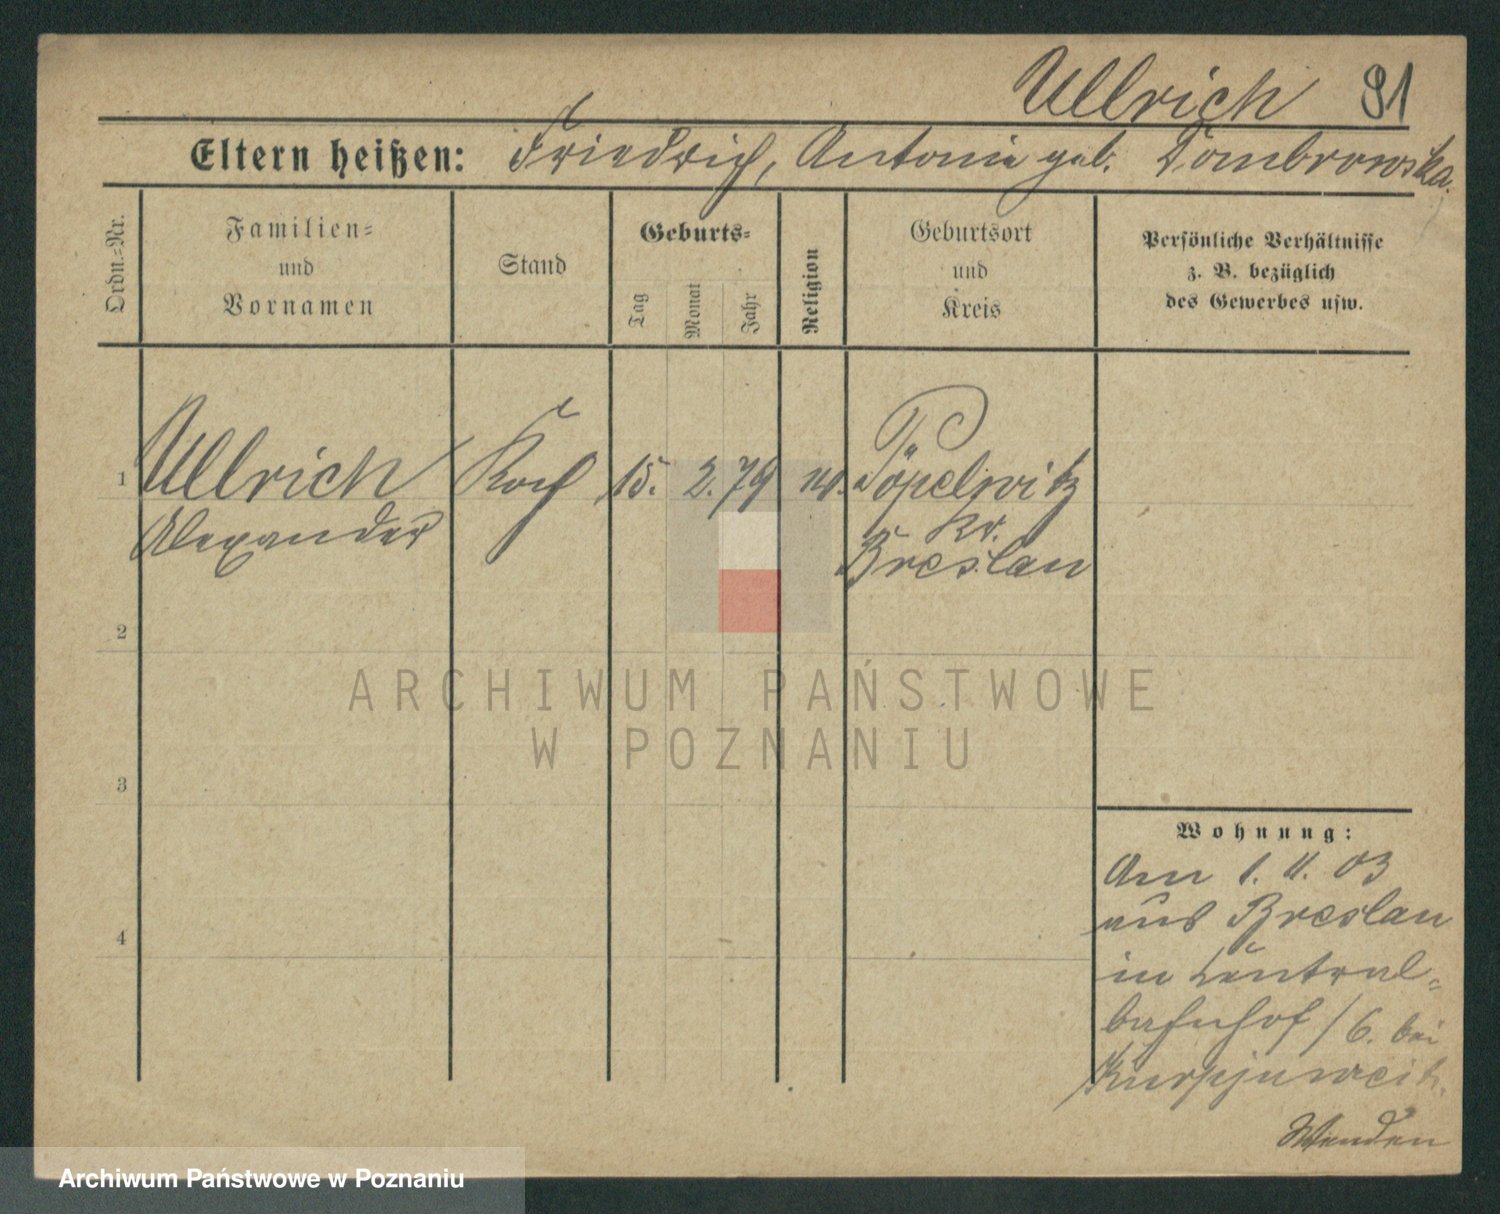 Ullrich 91
Eltern heißen: Friedrich, Antonie geb. Dombrowska.
Ordn.-Nr.
Familien-
und
Vornamen
Stand
Geburts-
Tag
Monat
Jahr
Religion
Geburtsort
und
Kreis
Persönliche Verhältnisse
z. B. bezüglich
des Gewerbes usw.
1 Ullrich Koch 15. 2. 79 Töpelwitz
Alexander Kr.
Breslau
2
3
4
Wohnung:
Am 1. 11. 03
aus Breslau
in Central-
bahnhof / 6. bei
Wenden
ARCHIWUM PAŃSTWOWE
W POZNANIU
Archiwum Państwowe w Poznaniu